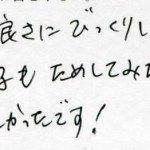 良さにびっくりし
子もためしてみた
かったです!